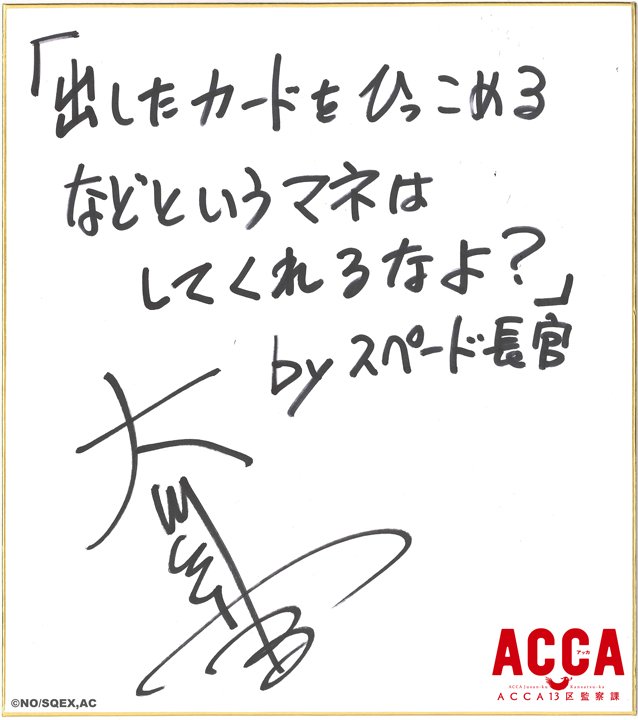 「出したカードをひっこめる
などというマネは
してくれるなよ?」
by スペード長官
大
ACCA
アッカ
ACCA Jusan-ku Kansatsu-ka
ACCA13区監察課
©NO/SQEX,AC